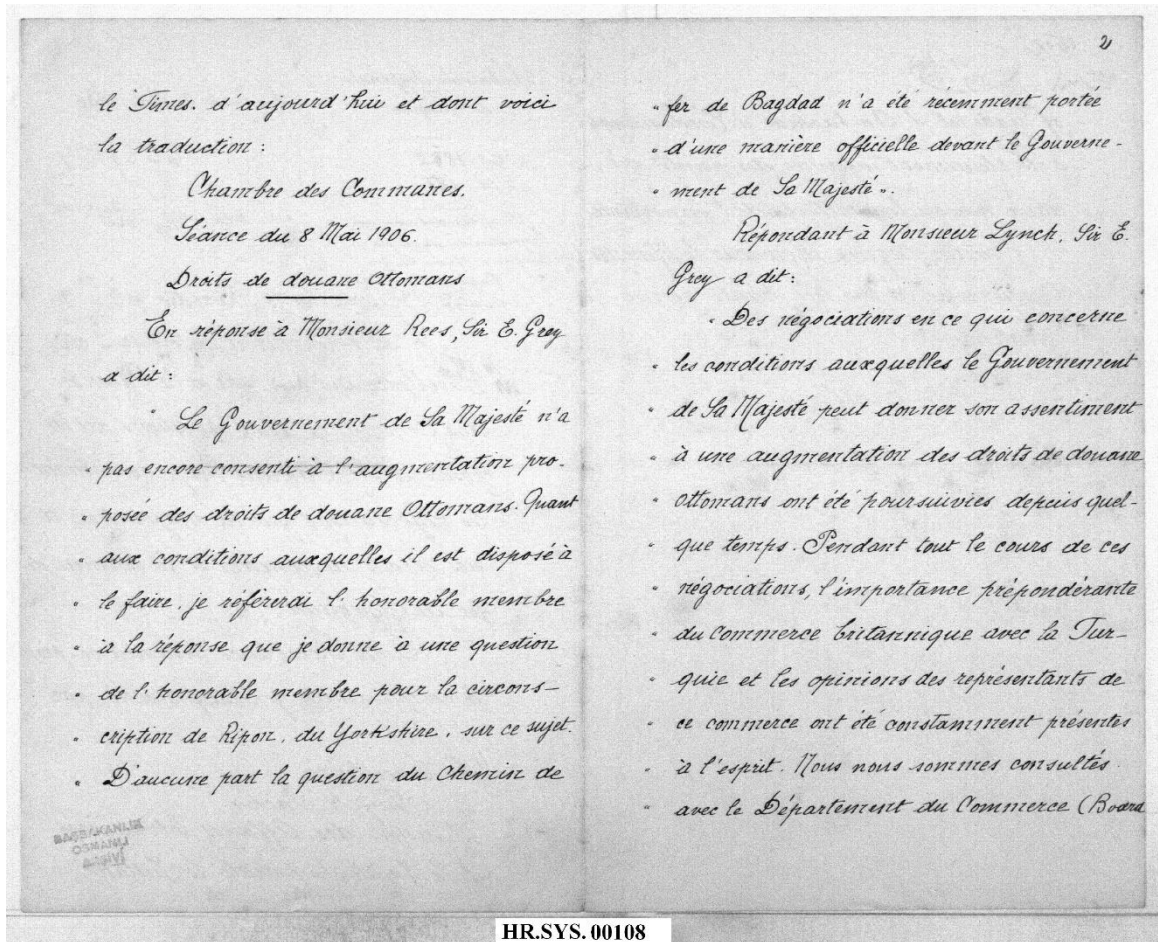 le Times. d'aujourd'hui et dont voici
la traduction :
Chambre des Communes.
Séance du 8 Mai 1906.
Droits de douane Ottomans
En réponse à Monsieur Rees, Sir E. Grey
a dit :
" Le Gouvernement de Sa Majesté n'a
" pas encore consenti à l'augmentation pro-
" posée des droits de douane Ottomans. Quant
" aux conditions auxquelles il est disposé à
" le faire, je référerai l'honorable membre
" à la réponse que je donne à une question
" de l'honorable membre pour la circons-
" cription de Ripon, du Yorkshire, sur ce sujet.
" D'aucune part la question du Chemin de
2
" fer de Bagdad n'a été récemment portée
" d'une manière officielle devant le Gouverne-
" ment de Sa Majesté ".
Répondant à Monsieur Lynch, Sir E.
Grey a dit :
" Des négociations en ce qui concerne
" les conditions auxquelles le Gouvernement
" de Sa Majesté peut donner son assentiment
" à une augmentation des droits de douane
" Ottomans ont été poursuivies depuis quel-
" que temps. Pendant tout le cours de ces
" négociations, l'importance prépondérante
" du commerce britannique avec la Tur-
" quie et les opinions des représentants de
" ce commerce ont été constamment présentes
" à l'esprit. Nous nous sommes consultés
" avec le Département du Commerce (Board
HR.SYS. 00108